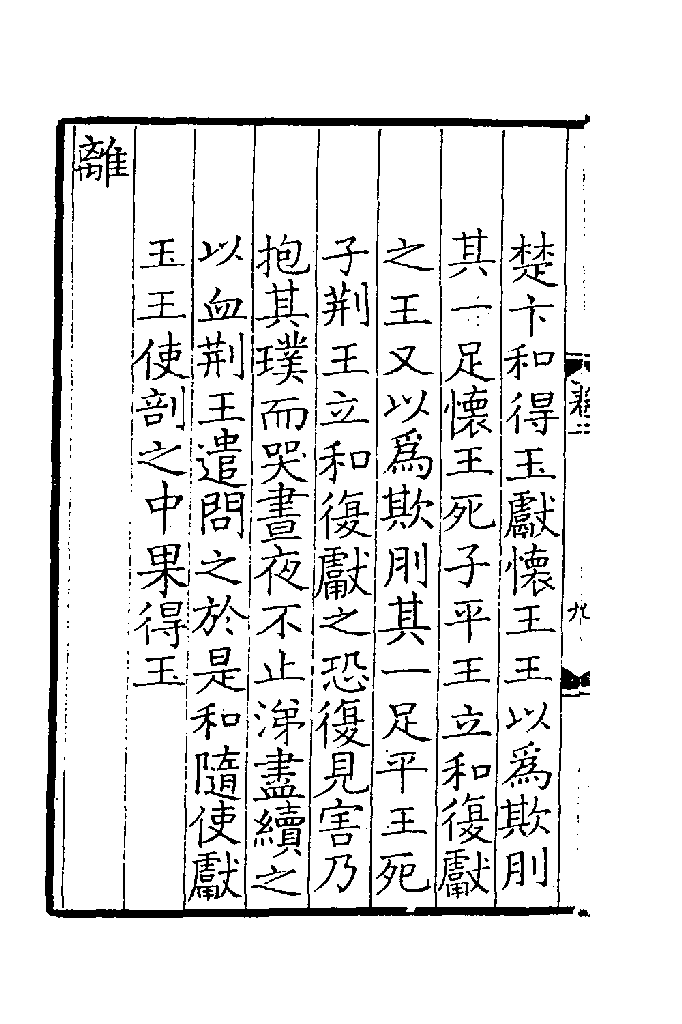 卷二
九
楚卞和得玉獻懷王王以為欺刖
其一足懷王死子平王立和復獻
之王又以為欺刖其一足平王死
子荆王立和復獻之恐復見害乃
抱其璞而哭晝夜不止涕盡續之
以血荆王遣問之於是和隨使獻
玉王使剖之中果得玉
離